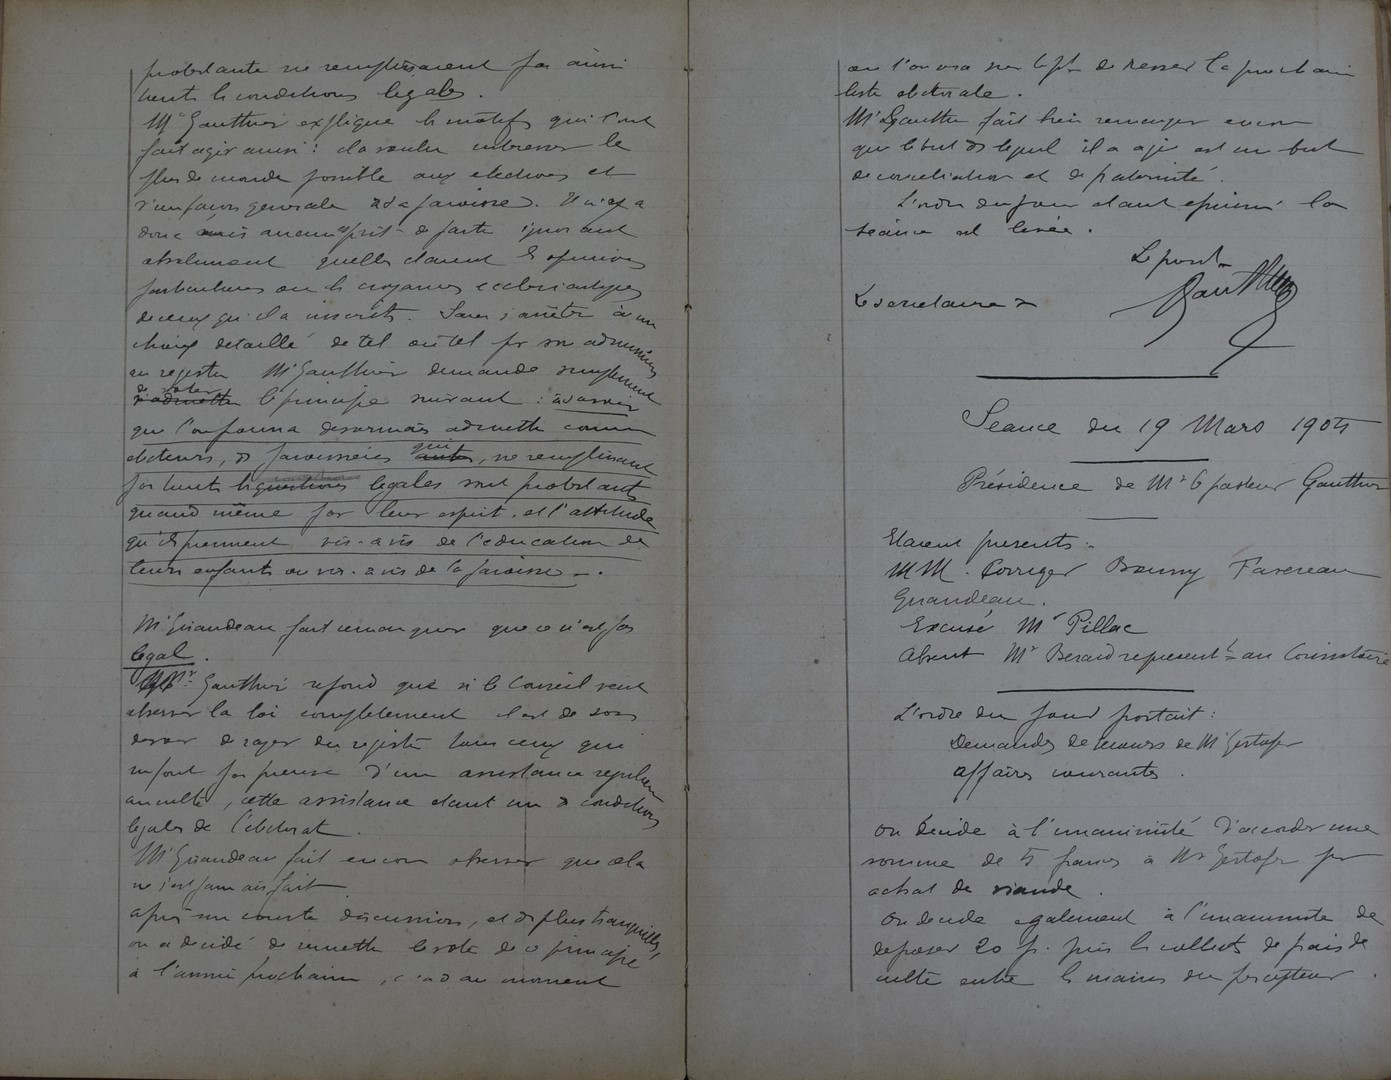 protestante ne remplissaient pas
toutes les conditions légales.
Mr Gauthier explique les motifs qui l'ont
fait agir ainsi : il a voulu intéresser le
plus de monde possible aux élections et
d'une façon générale à la paroisse. Il n'y a
donc mis aucun esprit de parti ignorant
absolument quelles étaient les opinions
particulières ou les croyances ecclésiastiques
de ceux qu'il a inscrits. Sans s'arrêter à un
choix détaillé de tel ou tel pr son admission
au registre Mr Gauthier demande simplement
de voter le principe suivant : à savoir
que l'on pourra désormais admettre comme
électeurs, des paroissiens qui, ne remplissant
pas toutes les conditions légales sont protestants
quand même par leur esprit, et l'attitude
qu'ils prennent vis-à-vis de l'éducation de
leurs enfants ou vis-à-vis de la paroisse.
Mr Girandeau fait remarquer que ce n'est pas
légal.
Mr Gauthier répond que si le Conseil veut
observer la loi complètement il est de son
devoir de rayer du registre tous ceux qui
ne font pas preuve d'une assistance régulière
au culte, cette assistance étant une des conditions
légales de l'électorat.
Mr Girandeau fait encore observer que cela
ne s'est jamais fait
après une courte discussion, et des plus tranquilles,
on a décidé de remettre le vote de ce principe
à l'année prochaine, c'.à.d au moment
où l'on sera sur le pt de dresser la prochaine
liste électorale.
Mr Gauthier fait bien remarquer encore
que le but ds lequel il a agi est un but
de conciliation et de fraternité.
L'ordre du jour étant épuisé la
séance est levée.
Le présdt
Le secrétaire
Gauthier
Séance du 19 Mars 1905
Présidence de Mr le pasteur Gauthier
Etaient présents :
MM. Corriger Bonny Favereau
Girandeau.
Excusé Mr Pillac
Absent Mr Berard représentt au Consistoire
L'ordre du jour portait :
Demandes de secours de Mr Gestafer
affaires courantes.
On décide à l'unanimité d'accorder une
somme de 5 francs à Mr Gestafer pr
achat de viande.
On décide également à l'unanimité de
déposer 20 f. pris les collects de frais de
culte entre les mains du percepteur.